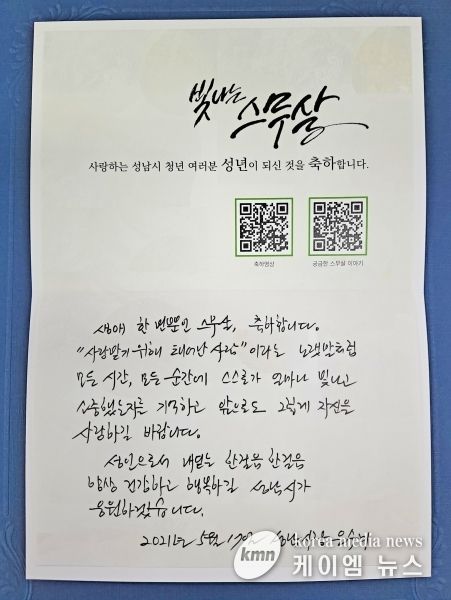 빛나는 스무살
사랑하는 성남시 청년 여러분 성년이 되신 것을 축하합니다.
축하영상 궁금한 스무살 이야기
생애 한 번뿐인 스무살, 축하합니다.
"사랑받기 위해 태어난 사람"이라는 노랫말처럼
모든 시간, 모든 순간에 스스로가 얼마나 빛나고
소중했는지를 기억하고 앞으로도 그렇게 자신을
사랑하길 바랍니다.
성인으로서 내딛는 한걸음 한걸음
항상 건강하고 행복하길 성남시가
응원하겠습니다.
2021년 5월 17일 성남시장 은수미
korea media news
kmn 케이엠 뉴스